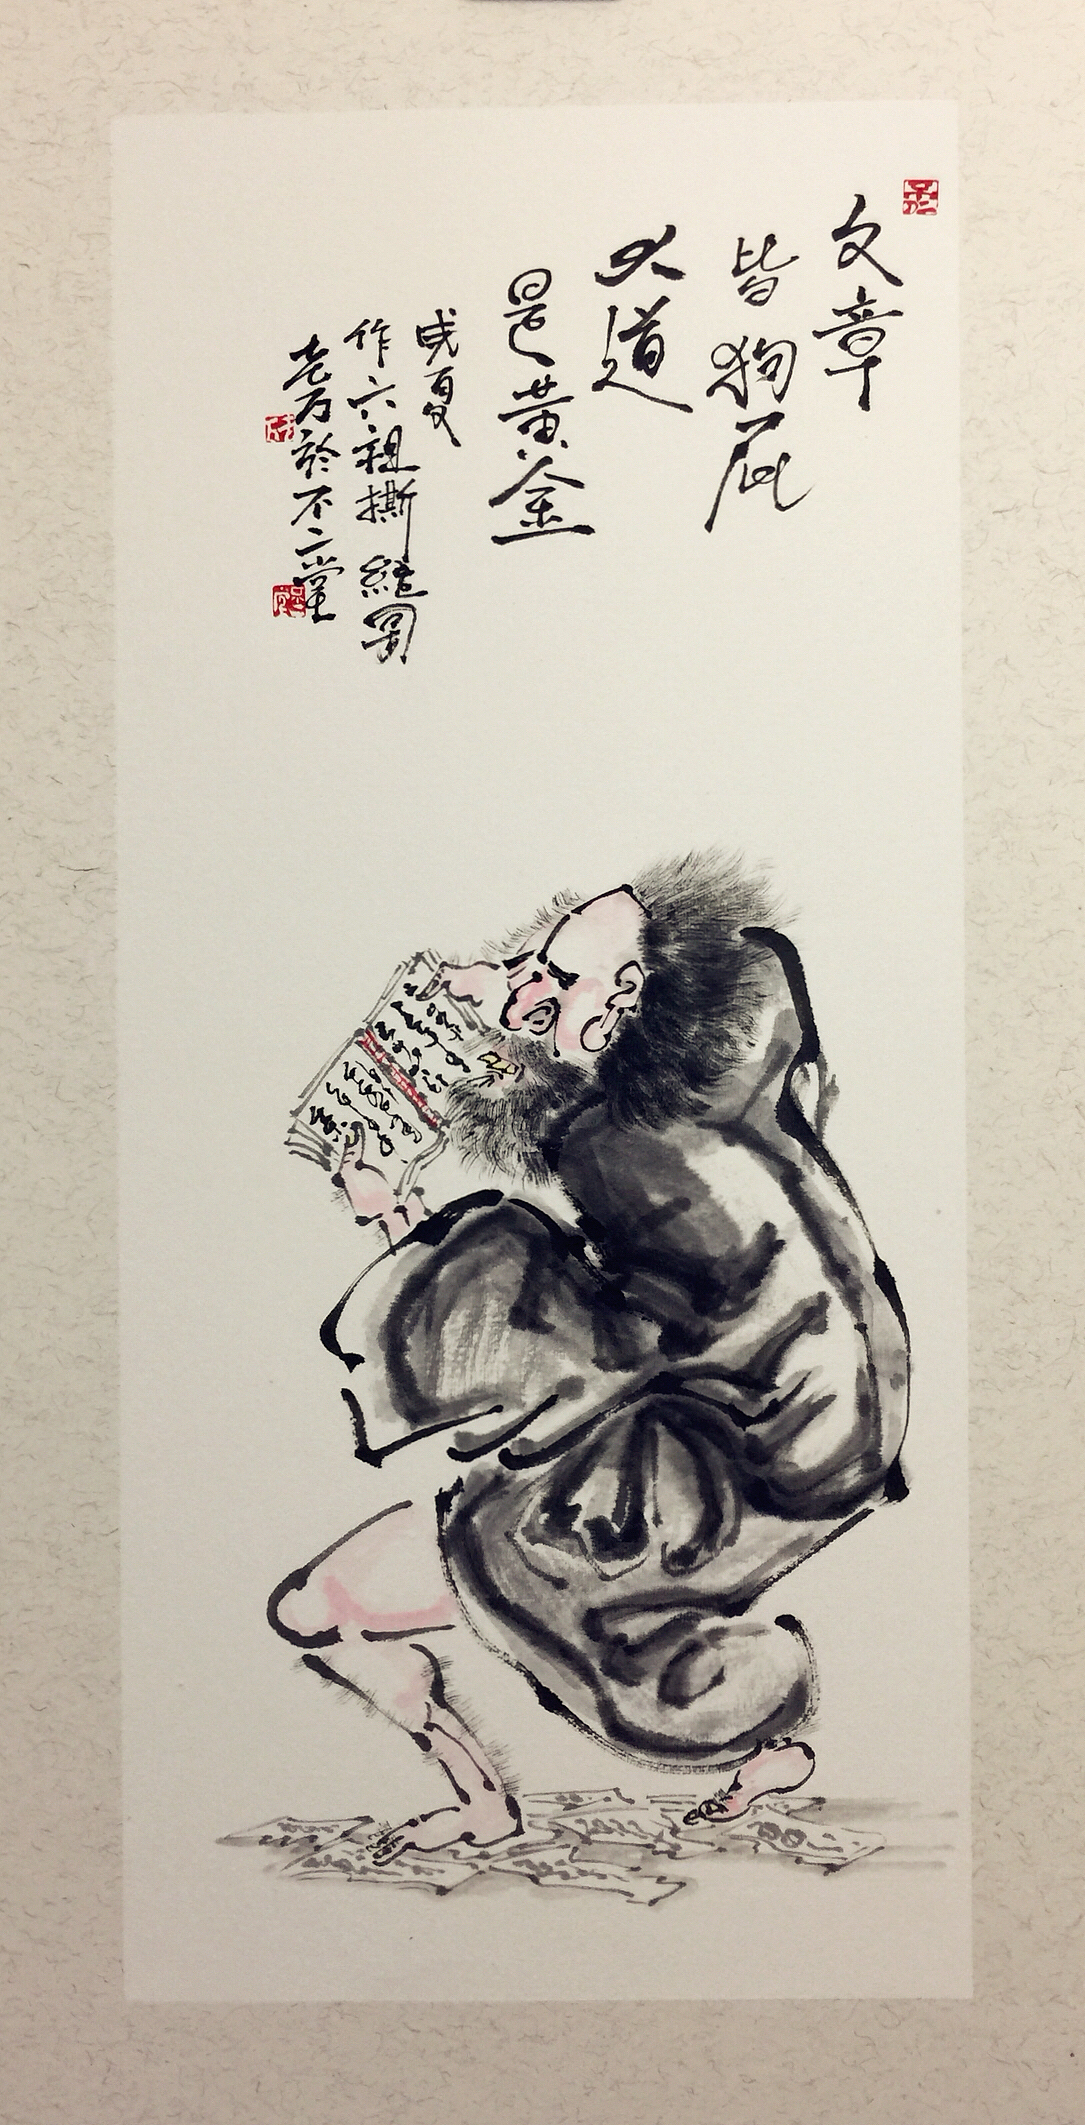 文章
皆狗屁
大道
是黄金
戌夏
作六祖撕经图
老万於不二堂